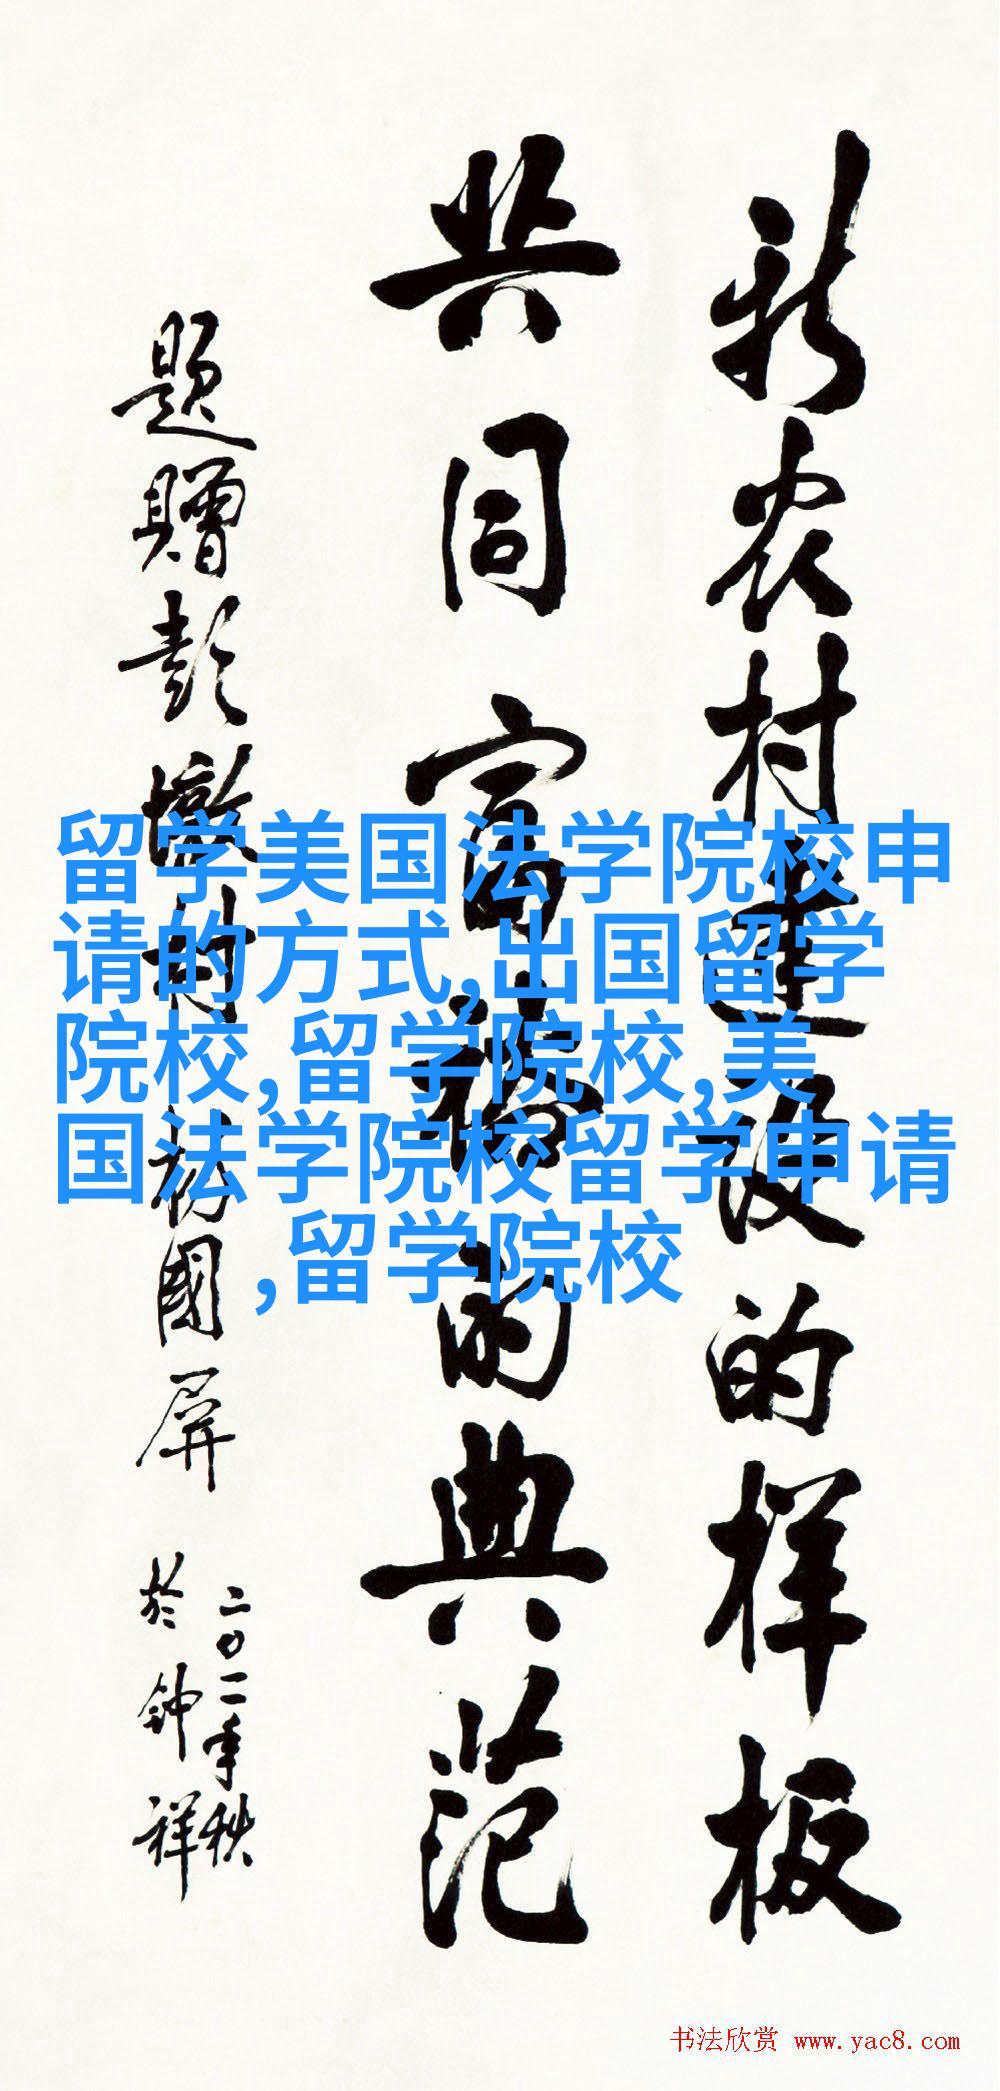 新农村建设的样板
共同富裕的典范
题赠彭墩村國屏
二〇一一年秋
於钟祥
留学美国法学院校申
请的方式,出国留学
院校,留学院校,美
国法学院校留学申请
,留学院校
书法欣赏 www.yac8.com